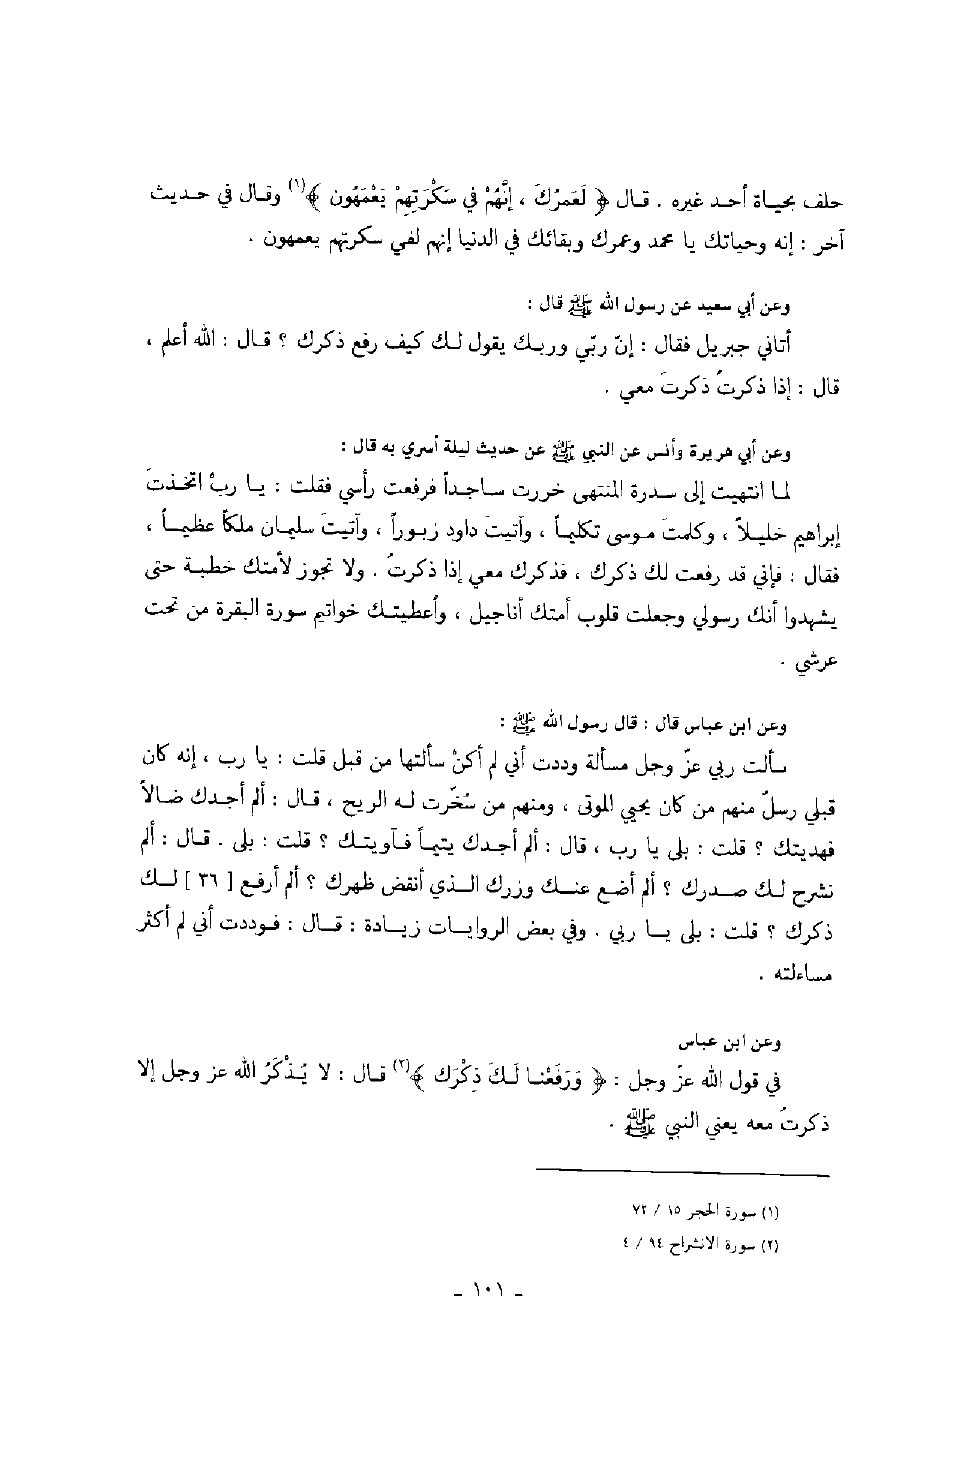 حلف بحياة أحد غيره . قال ﴿ لَعَمرُكَ ، إنَّهُمْ في سَكْرَتِهِمْ يَعْمَهُون ﴾(١) وقال في حديث
آخر : إنه وحياتك يا محمد وعمرك وبقائك في الدنيا إنهم لفي سكرتهم يعمهون .
وعن أبي سعيد عن رسول الله ﷺ قال :
أتاني جبريل فقال : إنّ ربّي وربك يقول لك كيف رفع ذكرك ؟ قال : الله أعلم ،
قال : إذا ذكرتُ ذكرتَ معي .
وعن أبي هريرة وأنس عن النبي ﷺ عن حديث ليلة أسري به قال :
لما انتهيت إلى سدرة المنتهى خررت ساجداً فرفعت رأسي فقلت : يا ربْ اتخذتَ
إبراهيم خليلاً ، وكلمتَ موسى تكليماً ، وأتيتَ داود زبوراً ، وآتيتَ سليمان ملكاً عظيماً ،
فقال : فإني قد رفعت لك ذكرك ، فذكرك معي إذا ذكرتُ . ولا تجوز لأمتك خطبة حتى
يشهدوا أنك رسولي وجعلت قلوب أمتك أناجيل ، وأعطيتك خواتم سورة البقرة من تحت
عرشي .
وعن ابن عباس قال : قال رسول الله ﷺ :
سألت ربي عزّ وجل مسألة وددت أني لم أكنْ سألتها من قبل قلت : يا رب ، إنه كان
قبلي رسلٌ منهم من كان يحيي الموتى ، ومنهم من سُخّرت له الريح ، قال : ألم أجدك ضالاً
فهديتك ؟ قلت : بلى يا رب ، قال : ألم أجدك يتيماً فآويتك ؟ قلت : بلى . قال : ألم
نشرح لك صدرك ؟ ألم أضع عنك وزرك الذي أنقض ظهرك ؟ ألم أرفع [ ٣٦ ] لك
ذكرك ؟ قلت : بلى يا ربي . وفي بعض الروايات زيادة : قال : فوددت أني لم أكثر
مساءلته .
وعن ابن عباس
في قول الله عزّ وجل : ﴿ وَرَفَعْنا لَكَ ذِكْرَك ﴾(٢) قال : لا يُذْكَرُ الله عز وجل إلا
ذكرتُ معه يعني النبي ﷺ .
(١) سورة الحجر ١٥ / ٧٢
(٢) سورة الانشراح ٩٤ / ٤
- ١٠١ -